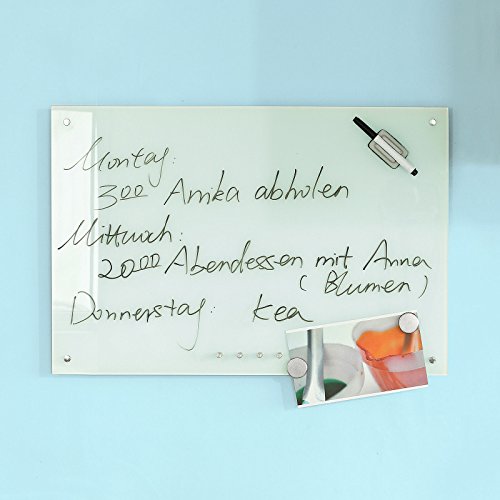 Montag:
3⁰⁰ Annika abholen
Mittwoch:
20⁰⁰ Abendessen mit Anna
(Blumen)
Donnerstag: Kea